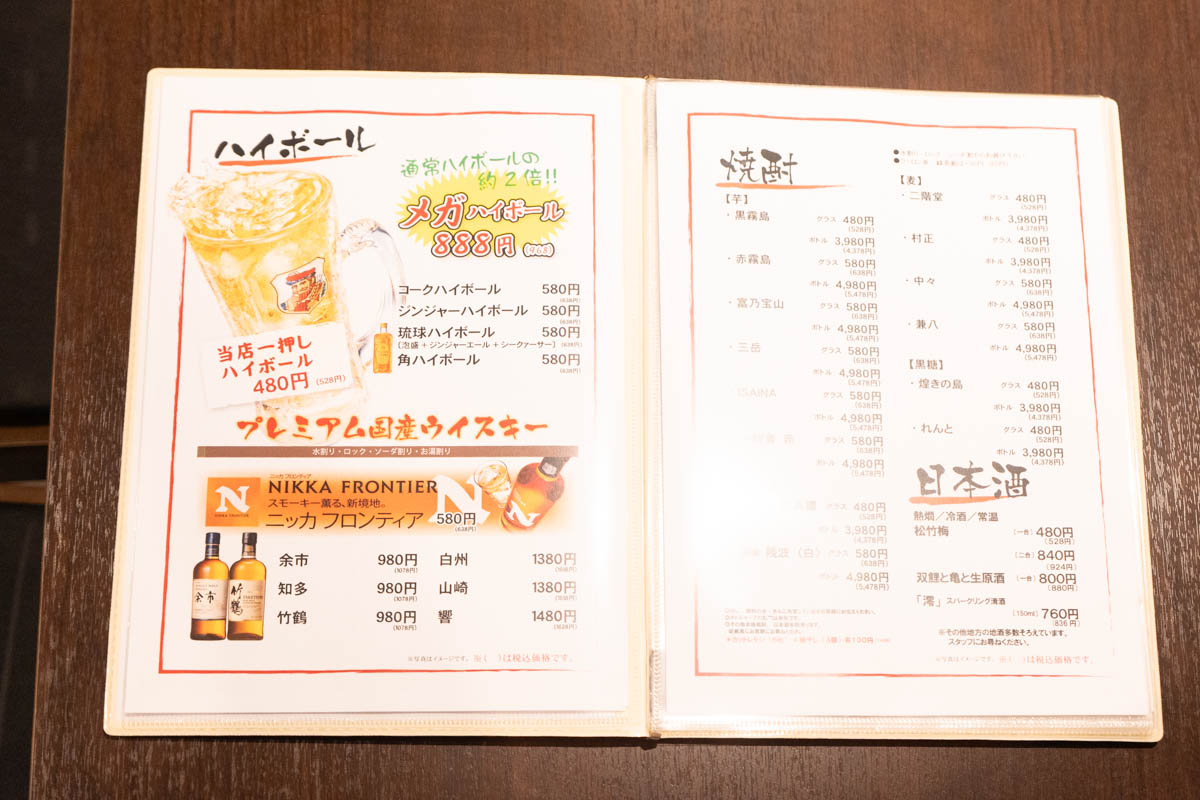 ハイボール
通常ハイボールの
約2倍!!
メガハイボール
888円 (968)
コークハイボール 580円
(638円)
ジンジャーハイボール 580円
(638円)
琉球ハイボール 580円
(泡盛+ジンジャーエール+シークァーサー) (638円)
角ハイボール 580円
(638円)
当店一押し
ハイボール
480円 (528円)
プレミアム国産ウイスキー
水割り・ロック・ソーダ割り・お湯割り
ニッカ フロンティア
NIKKA FRONTIER
スモーキー薫る、新境地。
ニッカ フロンティア 580円
(638円)
N
NIKKA FRONTIER
余市
竹鶴
余市 980円 白州 1380円
(1078円)
知多 980円 山崎 1380円
(1078円)
竹鶴 980円 響 1480円
(1078円) (1628円)
※写真はイメージです。 ※( )は税込価格です。
焼酎
【芋】
・黒霧島 グラス 480円
(528円)
ボトル 3,980円
(4,378円)
・赤霧島 グラス 580円
(638円)
ボトル 4,980円
(5,478円)
・富乃宝山 グラス 580円
(638円)
ボトル 4,980円
(5,478円)
・三岳 グラス 580円
(638円)
ボトル 4,980円
(5,478円)
ISAINA グラス 580円
(638円)
ボトル 4,980円
(5,478円)
グラス 580円
(638円)
ボトル 4,980円
(5,478円)
グラス 480円
(528円)
ボトル 3,980円
(4,378円)
残波(白) グラス 580円
(638円)
ボトル 4,980円
(5,478円)
【麦】
・二階堂 グラス 480円
(528円)
ボトル 3,980円
(4,378円)
・村正 グラス 480円
(528円)
ボトル 3,980円
(4,378円)
・中々 グラス 580円
(638円)
ボトル 4,980円
(5,478円)
・兼八 グラス 580円
(638円)
ボトル 4,980円
(5,478円)
【黒糖】
・煌きの島 グラス 480円
(528円)
ボトル 3,980円
(4,378円)
・れんと グラス 480円
(528円)
ボトル 3,980円
(4,378円)
日本酒
熱燗/冷酒/常温
松竹梅 (一合) 480円
(528円)
(二合) 840円
(924円)
双鯉と亀と生原酒 (一合) 800円
(880円)
「澪」 スパークリング清酒
(150ml) 760円
(836円)
※その他地方の地酒多数そろえています。
スタッフにお尋ねください。
※写真はイメージです。 ※( )は税込価格です。